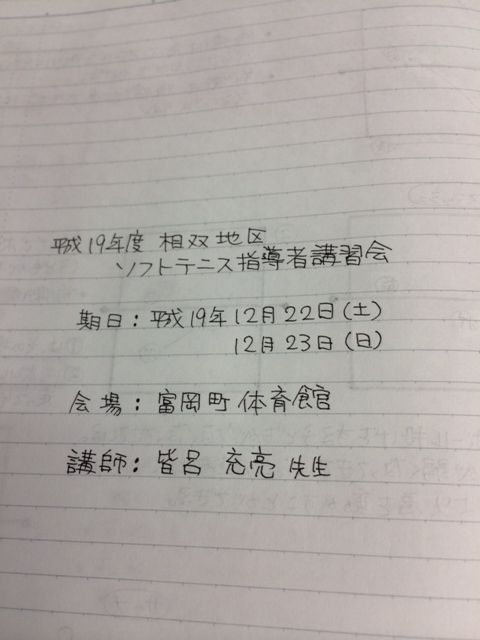 平成19年度 相双地区
ソフトテニス指導者講習会
期日：平成19年12月22日(土)
12月23日(日)
会場：富岡町体育館
講師：皆呂 充亮 先生